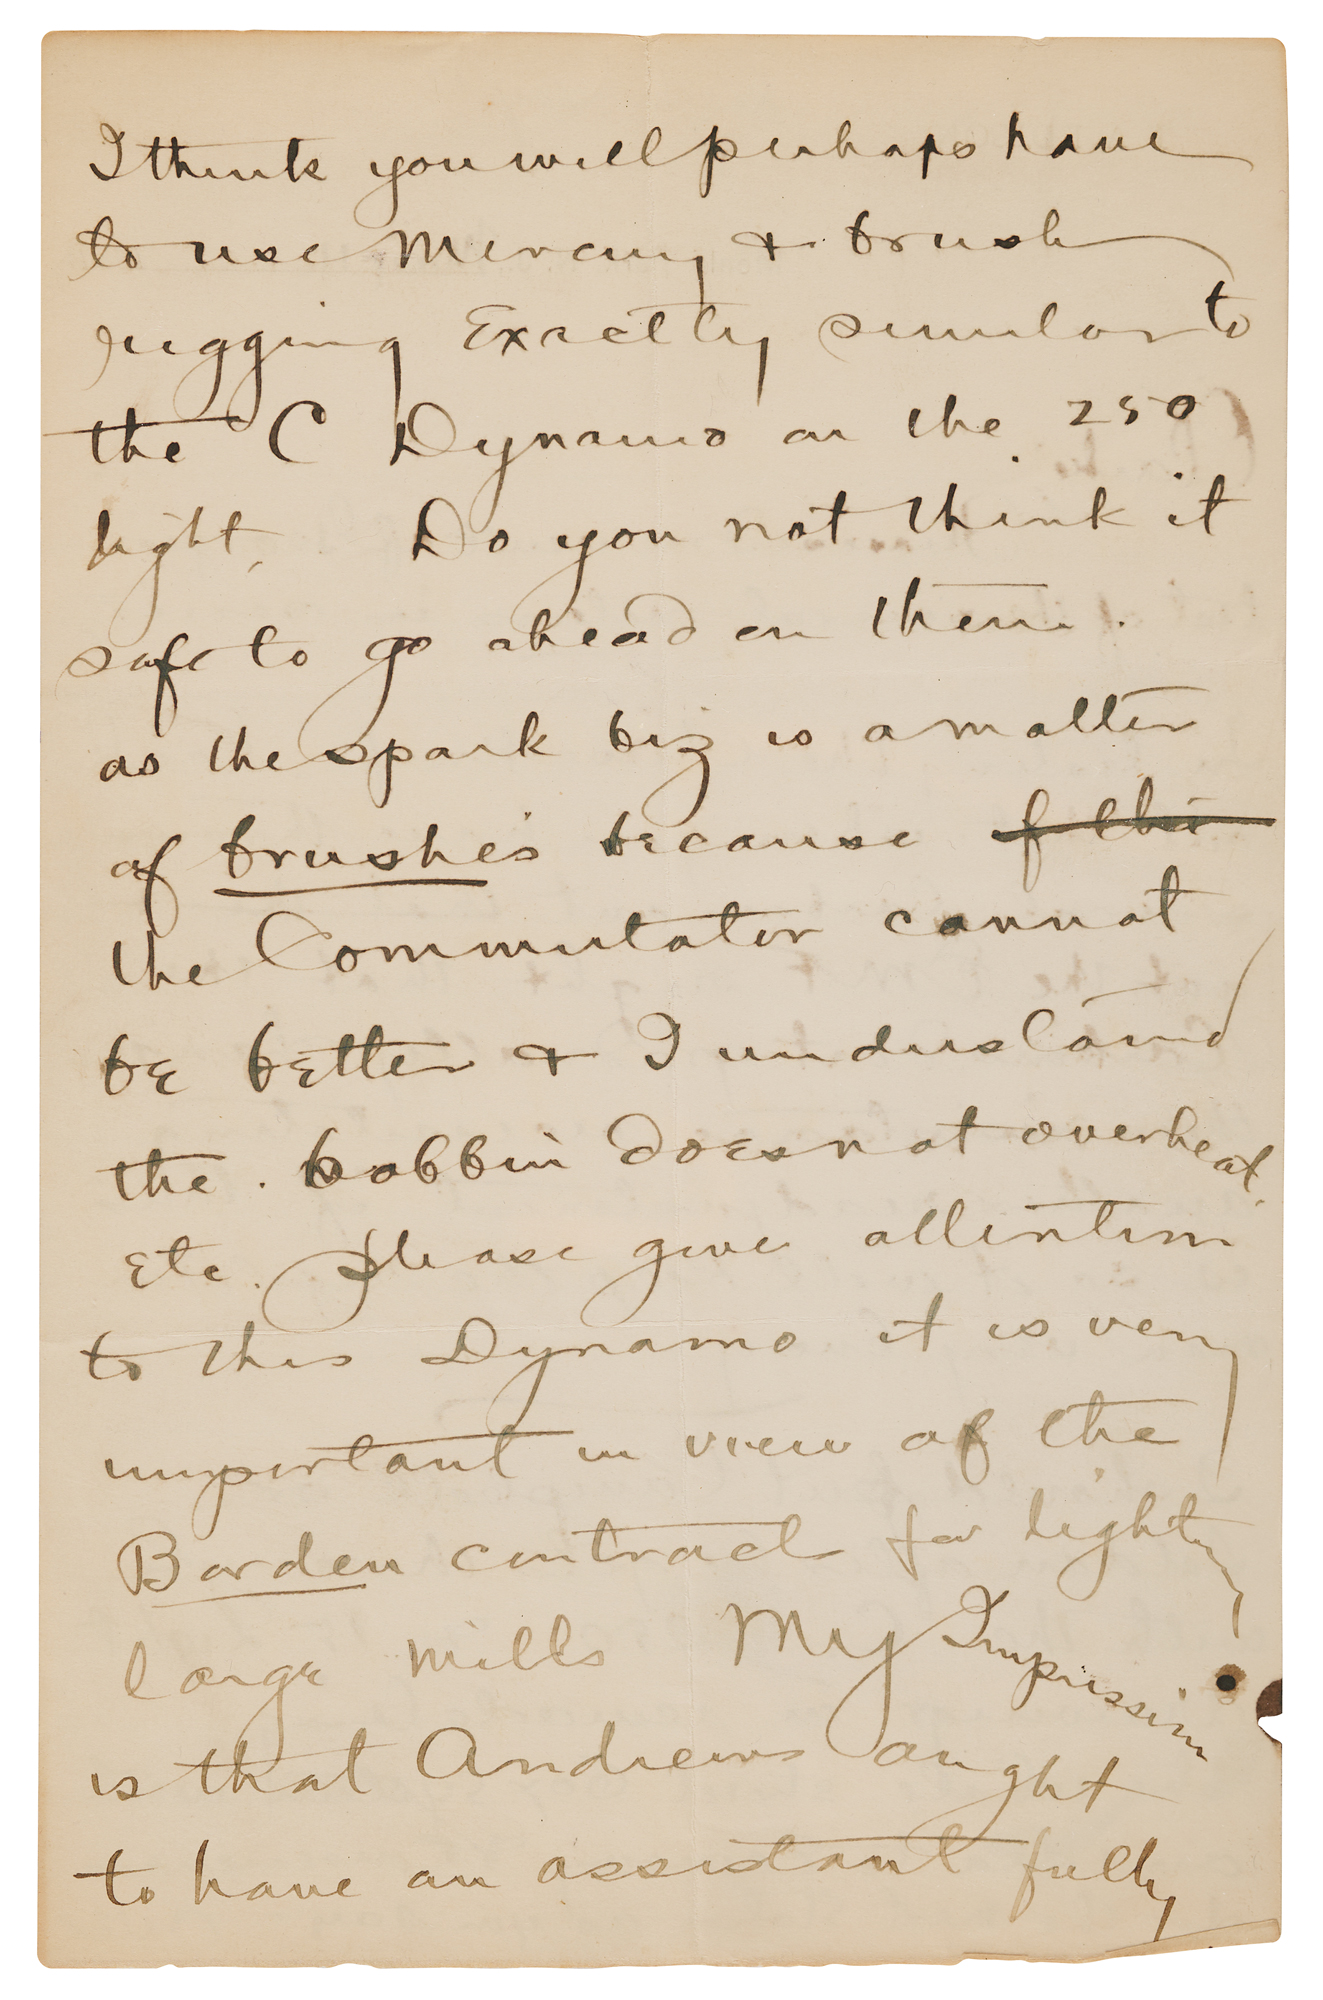 I think you will perhaps have
to use Mercury & brush
rigging Exactly similar to
the C Dynamo on the 250
light. Do you not think it
safe to go ahead on them.
as the spark biz is a matter
of brushes because if this
the Commutator cannot
be better & I understand
the. bobbin does not overheat.
Etc. please give attention
to this Dynamo it is very
important in view of the
Borden contract for lighting
large mills My Impression
is that Andrews ought
to have an assistant fully